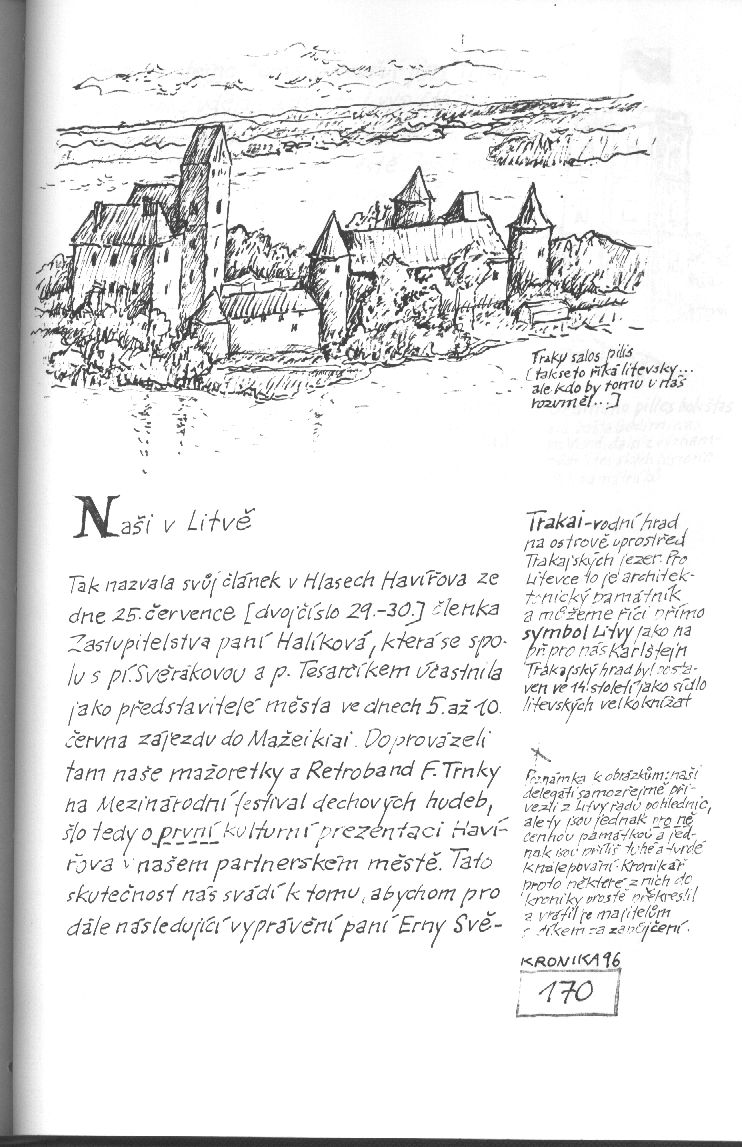 Traku salos pilis
[tak se to říká litevsky...
ale kdo by tomu u nás
rozuměl...]
Naši v Litvě
Tak nazvala svůj článek v Hlasech Havířova ze
dne 25. července [dvojčíslo 29.-30.] členka
Zastupitelstva paní Halíková, která se spo-
lu s pí. Svěrákovou a p. Tesarčíkem účastnila
jako představitelé města ve dnech 5. až 10.
června zájezdu do Mažeikiai. Doprovázeli
tam naše mažoretky a Retroband F. Trnky
na Mezinárodní festival dechových hudeb,
šlo tedy o první kulturní prezentaci Haví-
řova v našem partnerském městě. Tato
skutečnost nás svádí k tomu, abychom pro
dále následující vyprávění paní Erny Svě-
Trakai - vodní hrad
na ostrově uprostřed
Trakajských jezer. Pro
Litevce to je architek-
tonický památník
a můžeme říci přímo
symbol Litvy jako na
př. pro nás Karlštejn
Trakajský hrad byl posta-
ven ve 14. století jako sídlo
litevských velkoknížat
Poznámka k obrázkům: naši
delegáti samozřejmě při-
vezli z Litvy řadu pohlednic,
ale ty jsou jednak pro ně
cennou památkou a jed-
nak jsou příliš tuhé a tvrdé
k nalepování. Kronikář
proto některé z nich do
kroniky prostě překreslil
a vrátil je majitelům
s díkem za zapůjčení.
KRONIKA 96
170